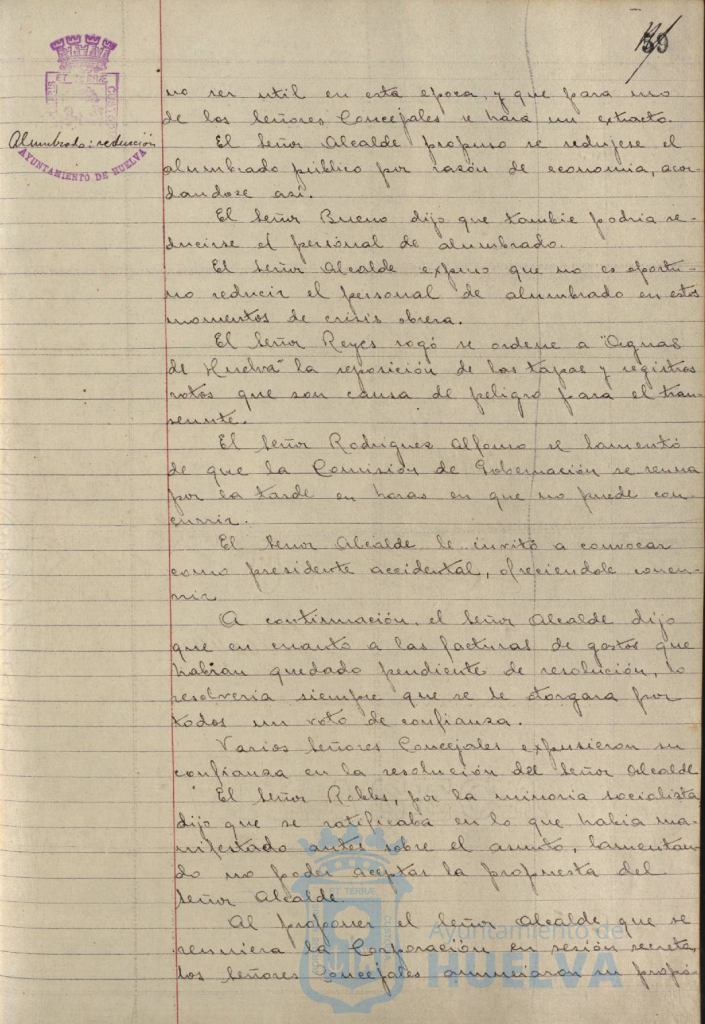 59
no ser util en esta epoca, y que para uno
de los Señores Concejales se hara un extracto.
Alumbrado: reducción
AYUNTAMIENTO DE HUELVA
El Señor Alcalde propuso se redujese el
alumbrado público por razón de economia, acor-
dandose asi.
El Señor Bueno dijo que tambie podria re-
ducirse el personal de alumbrado.
El Señor Alcalde expuso que no es oportu-
no reducir el personal de alumbrado en estos
momentos de crisis obrera.
El Señor Reyes rogó se ordene a "Aguas
de Huelva" la reposición de las tapas y registros
rotos que son causa de peligro para el tran-
seunte.
El Señor Rodriguez Alfonso se lamentó
de que la Comisión de Gobernación se reuna
por la tarde en horas en que no puede con-
currir.
El Señor Alcalde le invitó a convocar
como presidente accidental, ofreciendole concu-
rrir
A continuación, el Señor Alcalde dijo
que en cuanto a las facturas de gastos que
habian quedado pendiente de resolución, lo
resolveria siempre que se le otorgara por
todos un voto de confianza.
Varios Señores Concejales expusieron su
confianza en la resolución del Señor Alcalde
El Señor Robles, por la minoria socialista
dijo que se ratificaba en lo que habia ma-
nifestado antes sobre el asunto, lamentan-
do no poder aceptar la propuesta del
Señor Alcalde.
Al proponer el Señor Alcalde que se
reuniera la Corporación en sesión secreta,
los Señores Concejales anunciaron su propó-
Ayuntamiento de
HUELVA